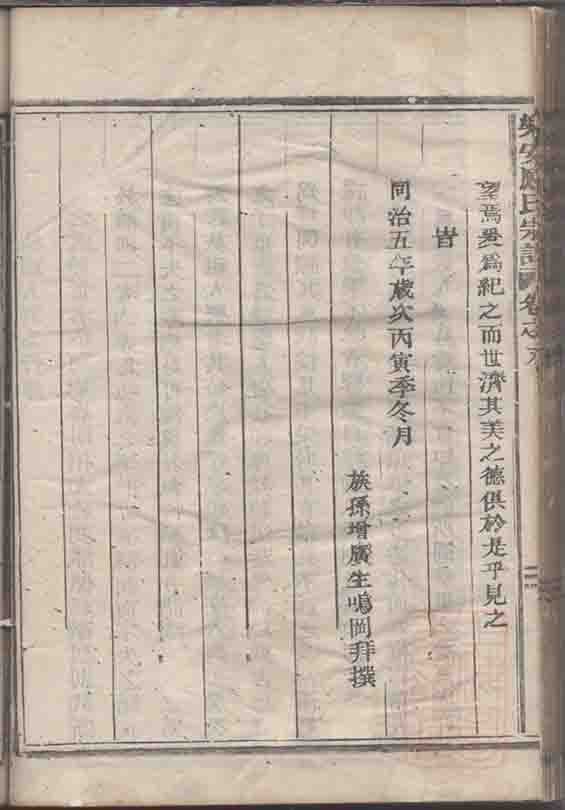 望焉爰為紀之而世濟其美之德俱於是乎見之
旹
同治五年歲次丙寅季冬月
族孫增廣生鳴岡拜撰
氏宗譜 卷之